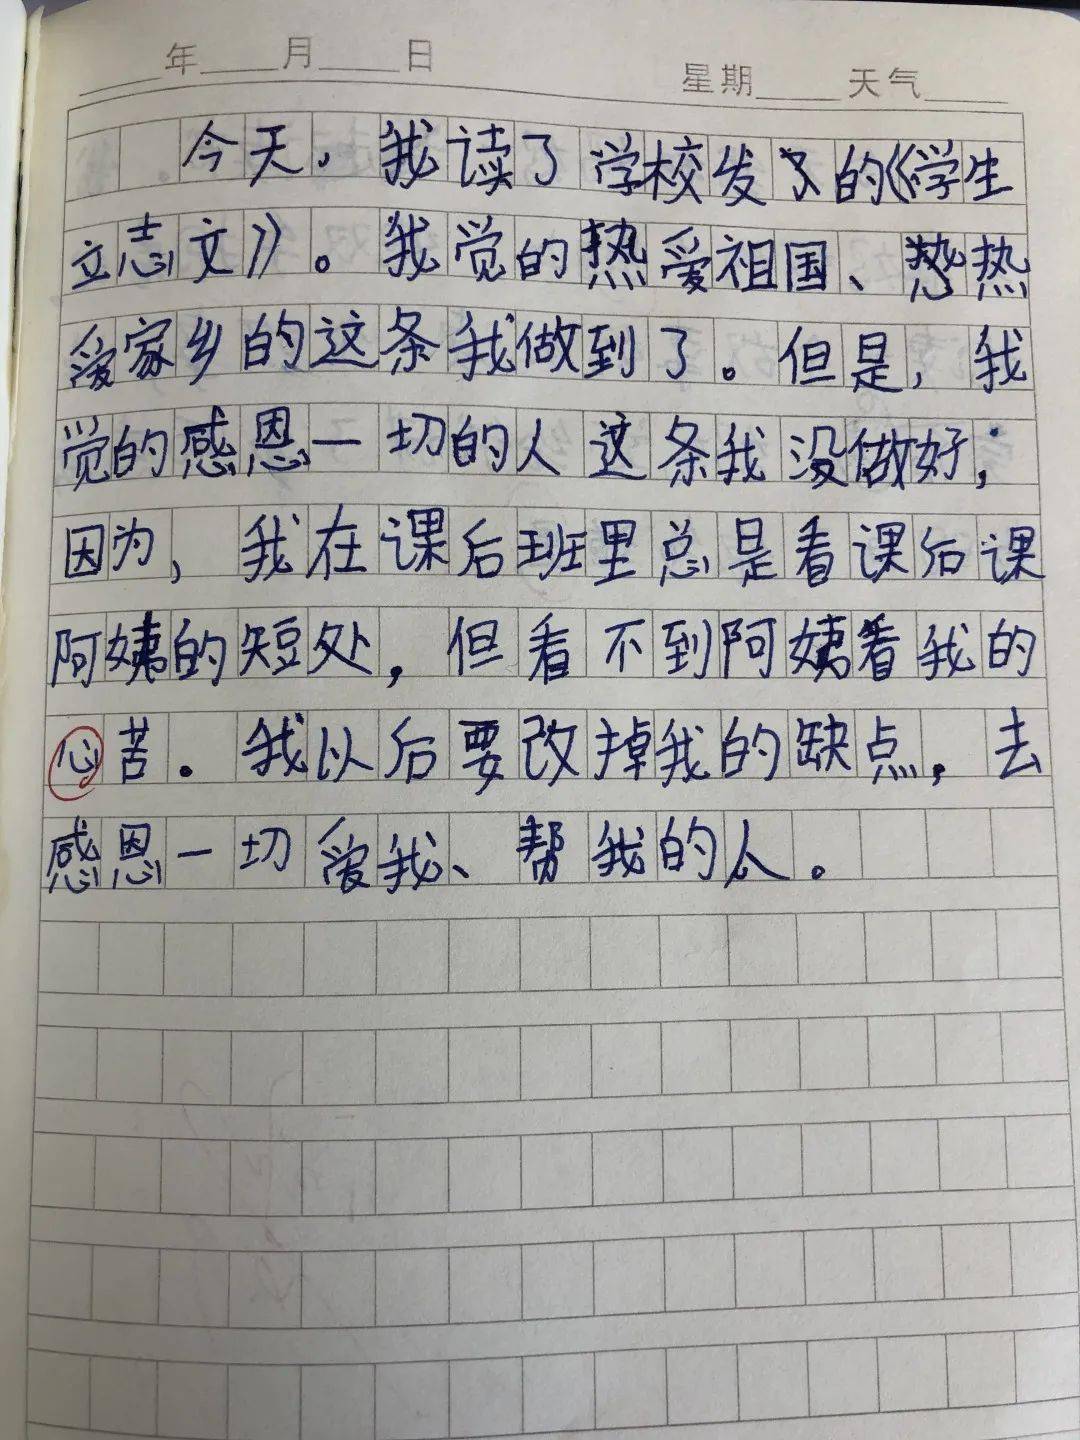 年 月 日 星期 天气
今天，我读了学校发的《学生
立志文》。我觉的热爱祖国、热
爱家乡的这条我做到了。但是，我
觉的感恩一切的人这条我没做好，
因为，我在课后班里总是看课后课
阿姨的短处，但看不到阿姨看我的
心苦。我以后要改掉我的缺点，去
感恩一切爱我、帮我的人。